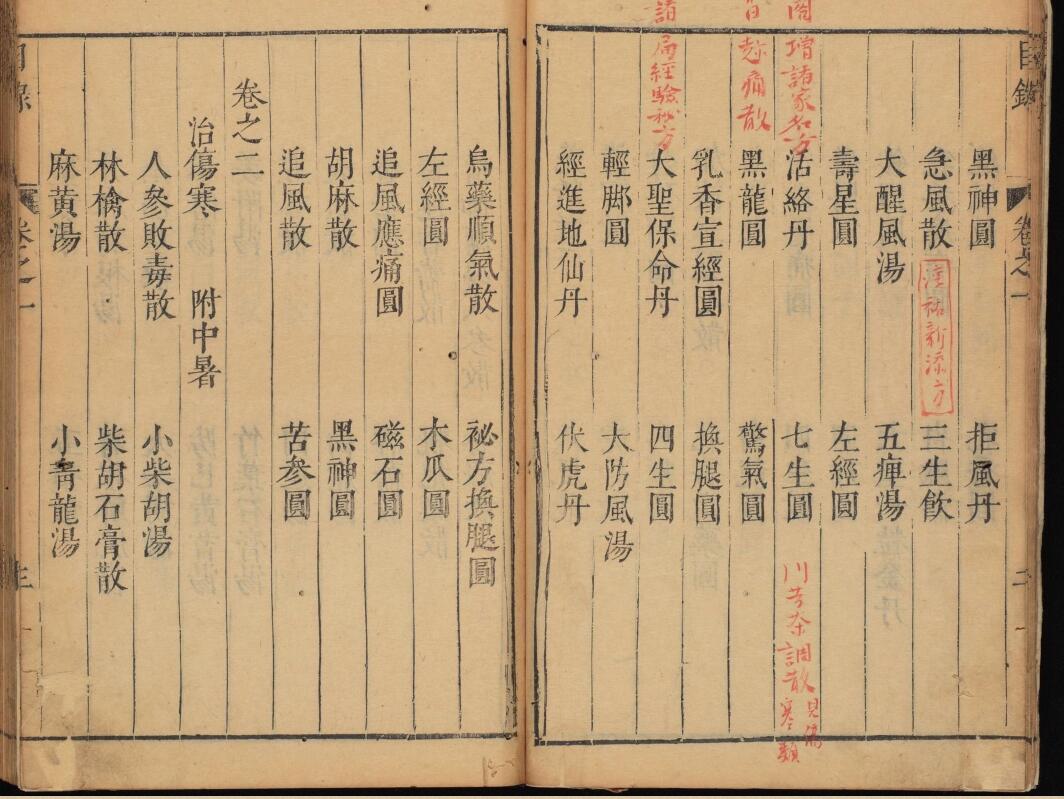 目錄 卷之一 二
黑神圓 拒風丹
急風散 三生飲
淳祐新添方
大醒風湯 五痺湯
壽星圓 左經圓
活絡丹 七生圓
增諸家名方
川芎茶調散 見傷寒類
黑龍圓 驚氣圓
乳香宣經圓 換腿圓
大聖保命丹 四生圓
局經驗秘方
輕脚圓 大防風湯
經進地仙丹 伏虎丹
烏藥順氣散 祕方換腿圓
左經圓 木瓜圓
追風應痛圓 磁石圓
胡麻散 黑神圓
追風散 苦參圓
卷之二
治傷寒 附中暑
人參敗毒散 小柴胡湯
林檎散 柴胡石膏散
麻黃湯 小青龍湯
目錄 卷之一